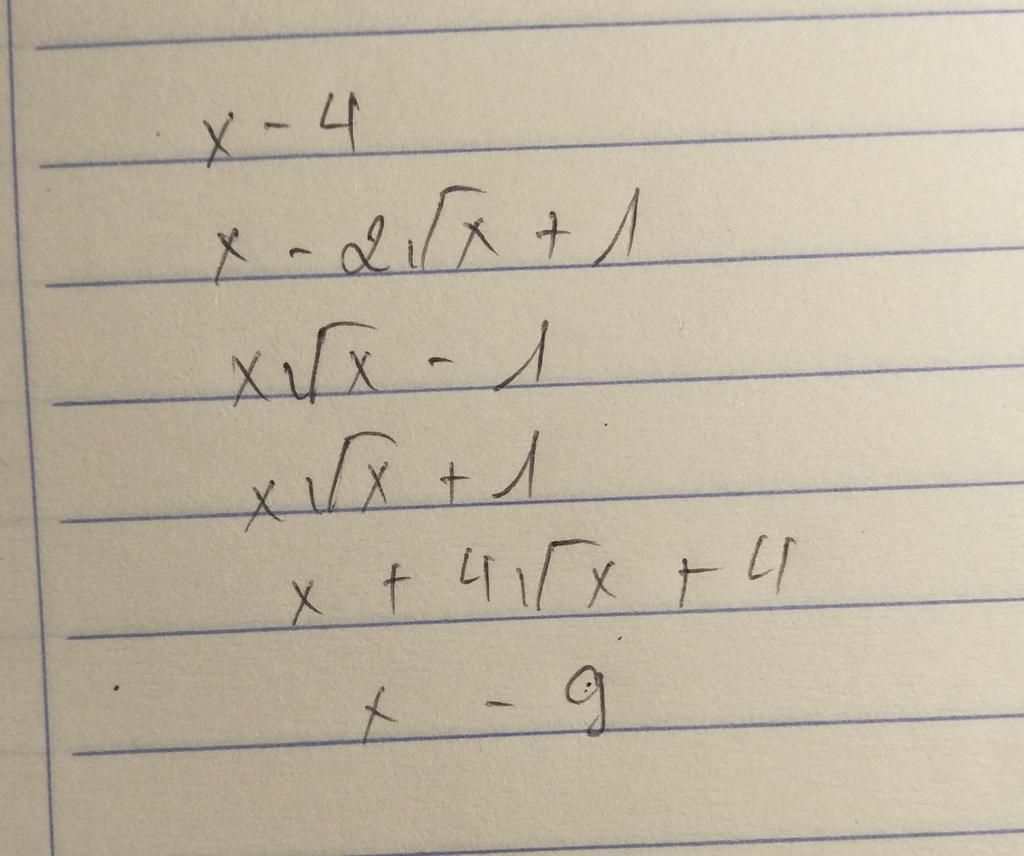 x - 4
x - 2√x + 1
x√x - 1
x√x + 1
x + 4√x + 4
x - 9